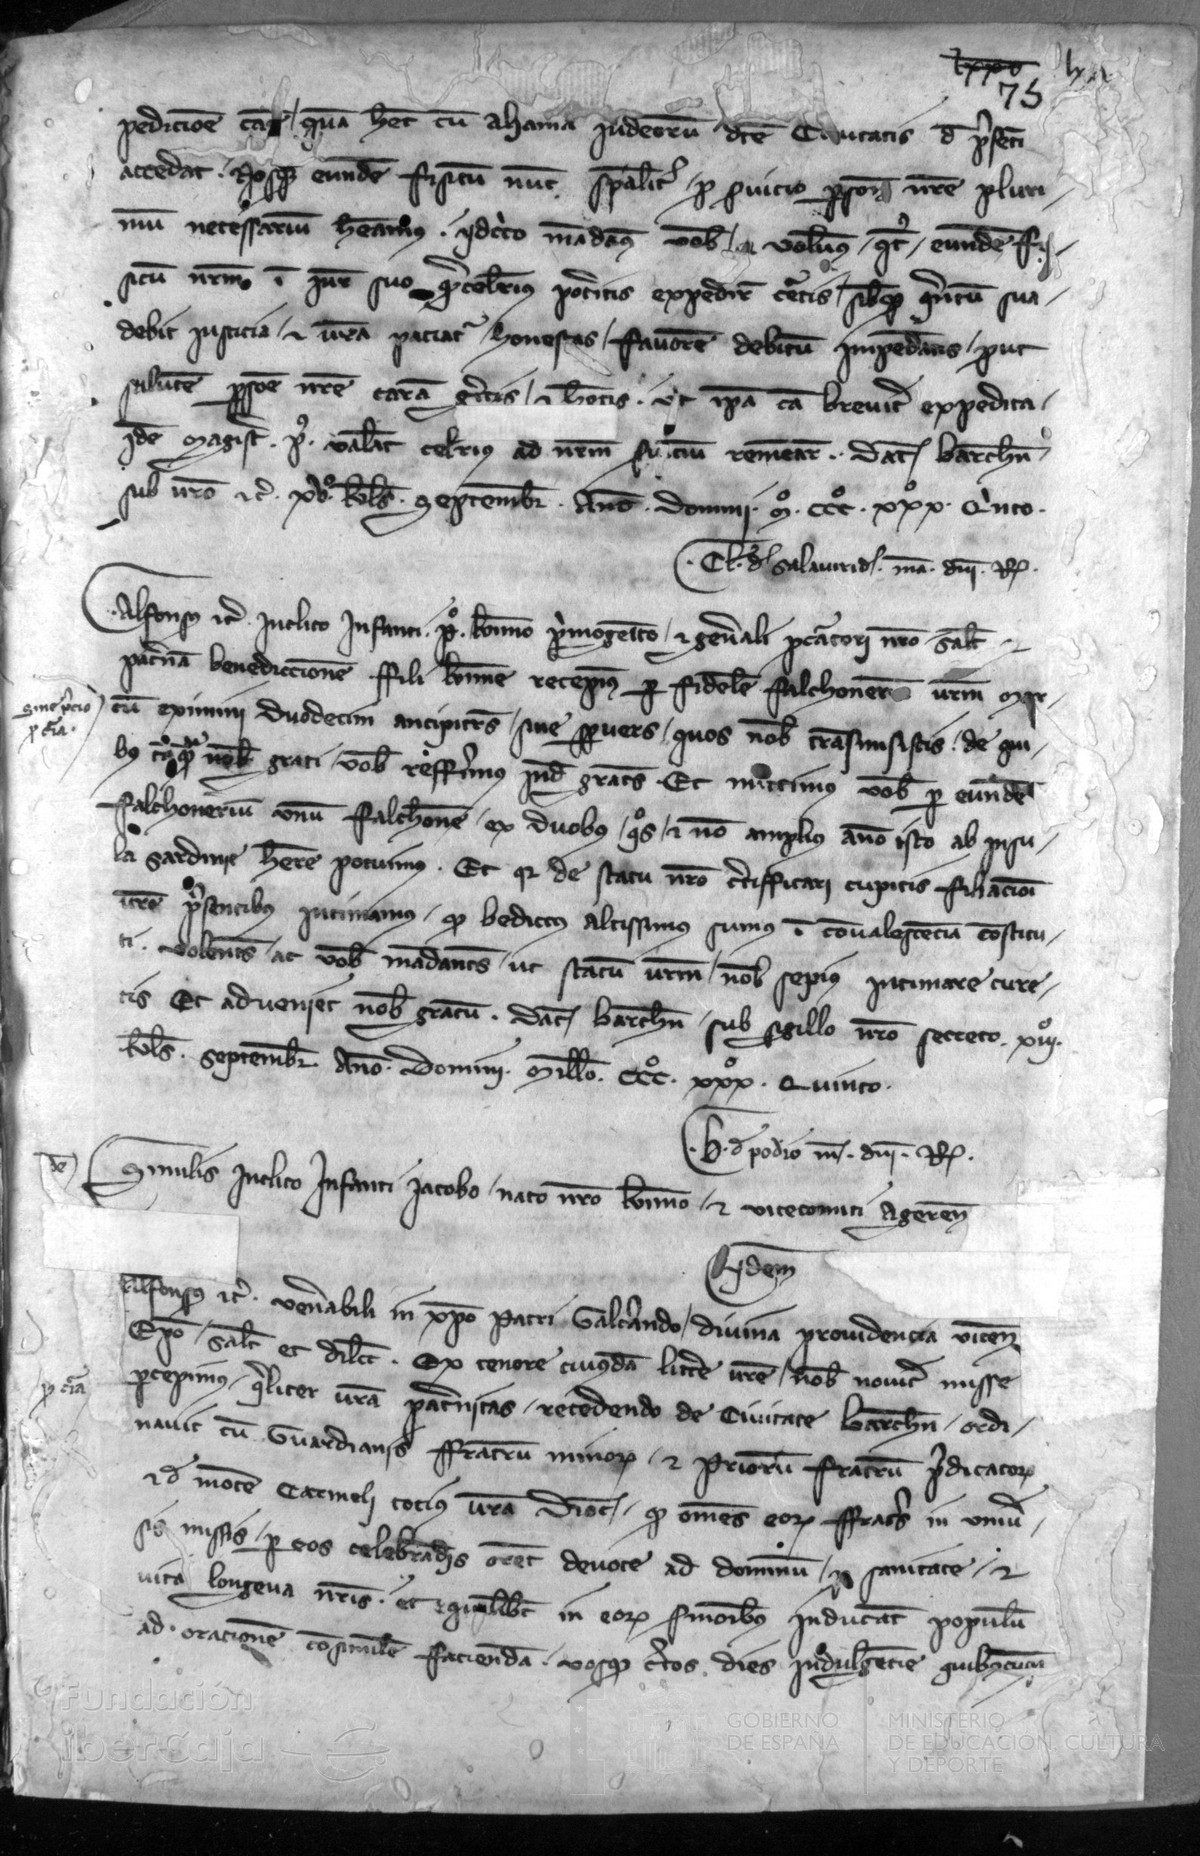 75
pedicione cause quam het cum Ahama Judeorum dicte Civitatis d presenti
accedat. Nosque eundem fisicum nunc spaliter p servicio persone nre pluri
mum necessarium heamus. idcirco mandamus vob volumus qt eundem fi
sicum nrm i jure suo celerius poteritis expedire curetis sibique quantum sua
debit justicia et vra paciatur honestas favorem debitum impendatis put
salutem persone nre caram geritis et hetis. ut ipa ca breviter expedita
idem Magister P. valeat celerius ad nrm servicium remeare. Dat Barchn
sub nro etc. xv kls Septembr. Anno Domini M CCC xxx Quinto.
mā. dni. R.
Alfonsus etc. Inclito Infanti P. kmo primogenito et generali pcuratori nro salt et
paternam benediccionem ffili kme recepimus p fidelem falchonerium vrm Mar
cum eximini duodecim ancipitres sive spervers quos nob transmisistis. de qui
bus nob grati vob refferimus inde grates. Et mittimus vob p eundem
falchonerium unum falchonem ex duobus quos et non amplius anno isto ab insu
la Sardinie here potuimus. Et qr de statu nro certifficari cupitis filiacioni
vre presentibus intimamus qd bedictus altissimus sumus i convalescencia constitu
ti. volentes ac vob mandantes ut statum vrm nob sepius intimare cure
tis Et adveniet nob gratum. Dat Barchn sub sigillo nro secreto xiii
kls Septembr. Anno Domini Millo CCC xxx Quinto.
B. d podio m. dni. R.
Similis Inclito Infanti Jacobo nato nro kmo et vicecomiti Ageren
Idem
Alfonsus etc. venerabili in xpo Patri Galcerando divina providencia vicen
Epo salt et dilct. Ex tenore cuiusdam littere vre nob noviter misse
pcepimus qualiter vra paternitas recedendo de Civitate Barchn ordi
navit cum Guardianis ffratrum minorum et Priorum fratrum predicatorum
et d monte Carmeli tocius vra dioc qd omnes eorum ffratres in univer
sis missis p eos celebrandis orent devote ad dominum sanitate et
vita longeva nris. et quilibet in eorum sermonibus inducat populum
ad oracionem consimilem faciendam. vosque certos dies indulgencie quibuscum
Fundación
iberCaja
GOBIERNO
DE ESPAÑA
MINISTERIO
DE EDUCACIÓN, CULTURA
Y DEPORTE